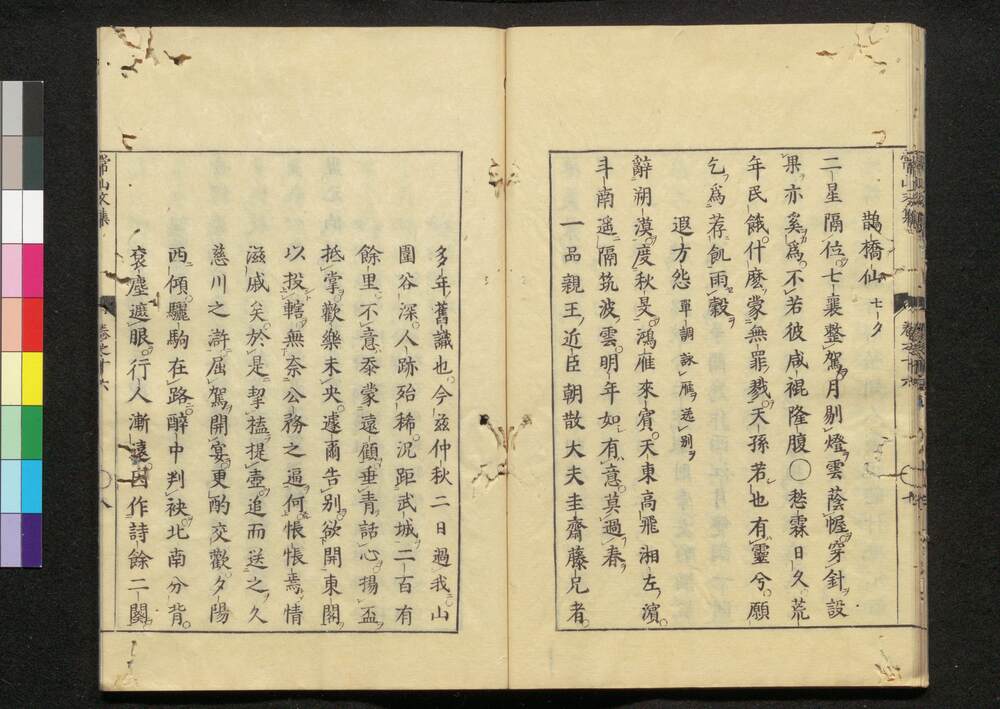 鵲橋仙 七ータ
二星隔位七襄整駕月剔燈雲蔭幄穿針設
果亦奚為不若彼咸褌隆腹○愁霖日久荒
年民餓什麽蒙無罪戮天孫若也有靈兮願
乞為荐飢雨穀
遐方怨 單調詠鴈送別
辭朔漠度秋旻鴻雁來賓天東高飛湘左濱
斗南遥隔筑波雲明年如有意莫過春
一品親王近臣朝散大夫圭齋藤兄者
多年舊識也今茲仲秋二日過我山
圍谷深人跡殆稀況距武城二百有
餘里不意忝蒙遠顧垂青話心揚盃
抵掌歡樂未央遽爾告別欲開東閣
以投轄無奈公務之逼何悵悵焉情
滋戚矣於是挈榼提壺追而送之久
慈川之滸屈駕開宴更酌交歡夕陽
西傾驪駒在路醉中判袂北南分背
衮塵遮眼行人漸遠因作詩餘二闋
常山文集
卷之十六
八